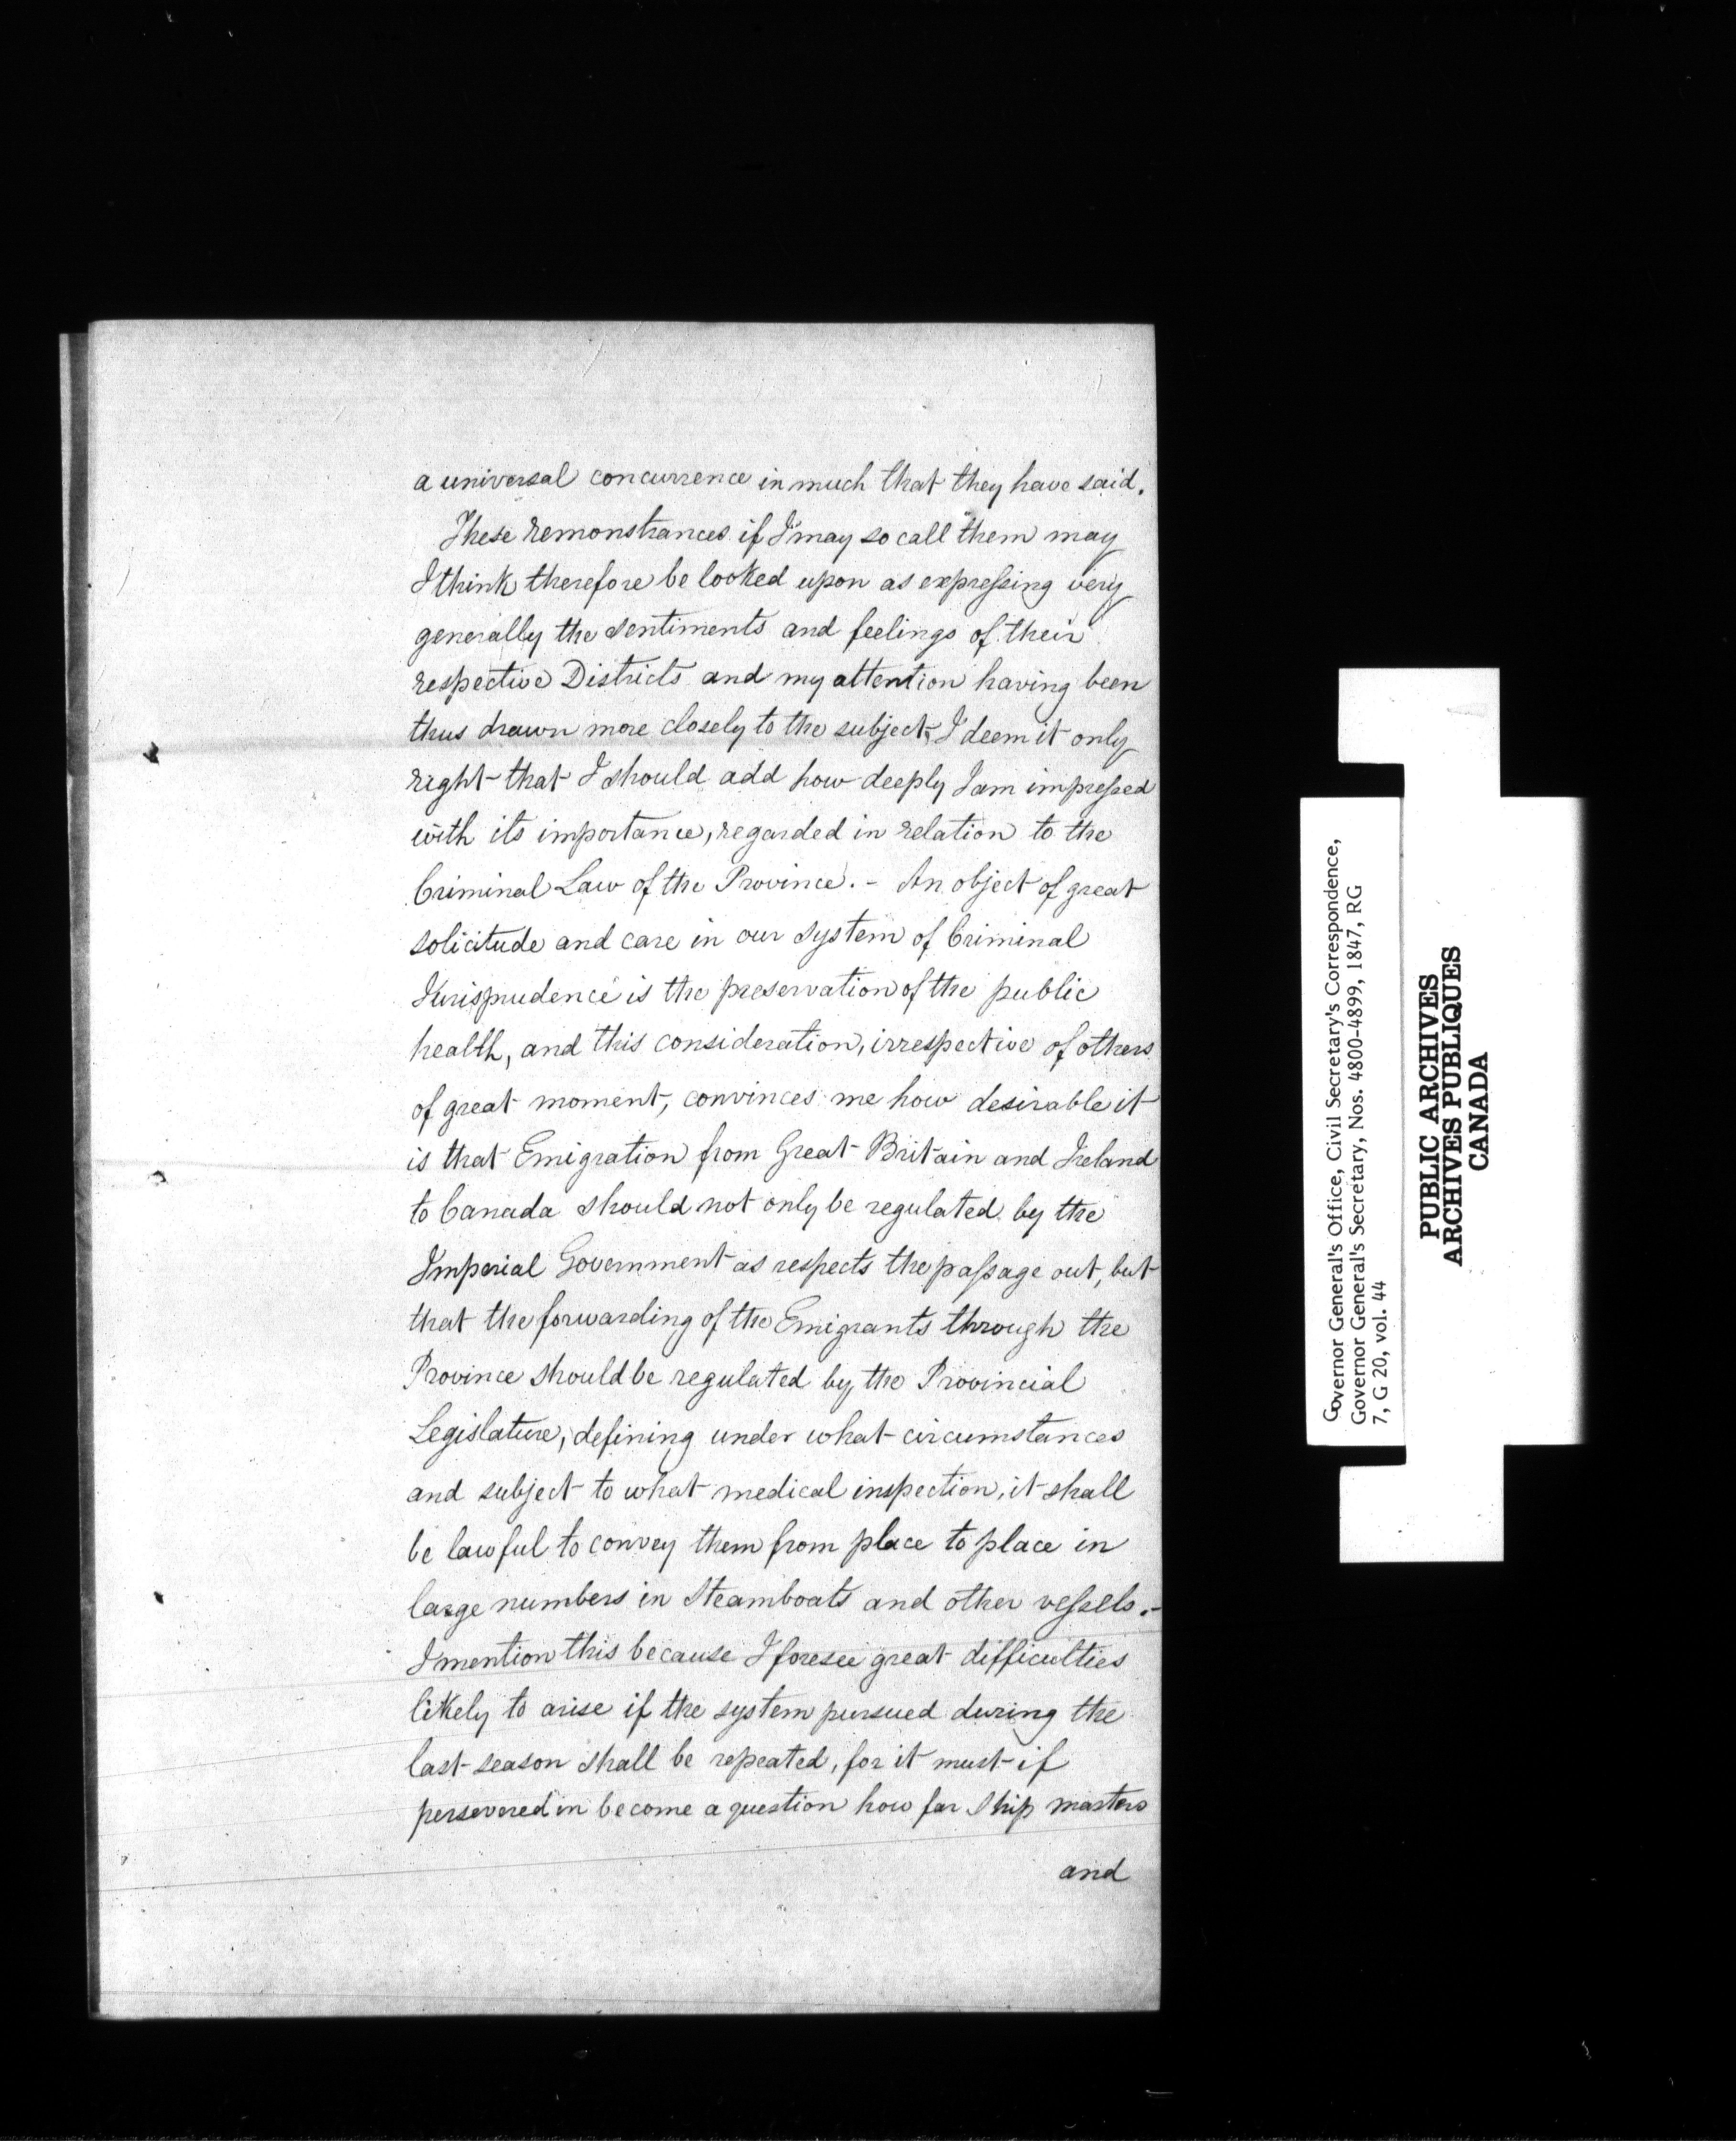 a universal concurrence in much that they have said.
These remonstrances if I may so call them may
I think therefore be looked upon as expressing very
generally the sentiments and feelings of their
respective Districts and my attention having been
thus drawn more closely to the subject, I deem it only
right that I should add how deeply I am impressed
with its importance, regarded in relation to the
Criminal Law of the Province. - An object of great
solicitude and care in our system of Criminal
Jurisprudence is the preservation of the public
health, and this consideration, irrespective of others
of great moment, convinces me how desirable it
is that Emigration from Great Britain and Ireland
to Canada should not only be regulated by the
Imperial Government as respects the passage out, but
that the forwarding of the Emigrants through the
Province should be regulated by the Provincial
Legislature, defining under what circumstances
and subject to what medical inspection, it shall
be lawful to convey them from place to place in
large numbers in Steamboats and other vessels. -
I mention this because I foresee great difficulties
likely to arise if the system pursued during the
last season shall be repeated, for it must if
persevered in become a question how far Ship masters
and
Governor General's Office, Civil Secretary's Correspondence,
Governor General's Secretary, Nos. 4800-4899, 1847, RG
7, G 20, vol. 44
PUBLIC ARCHIVES
ARCHIVES PUBLIQUES
CANADA